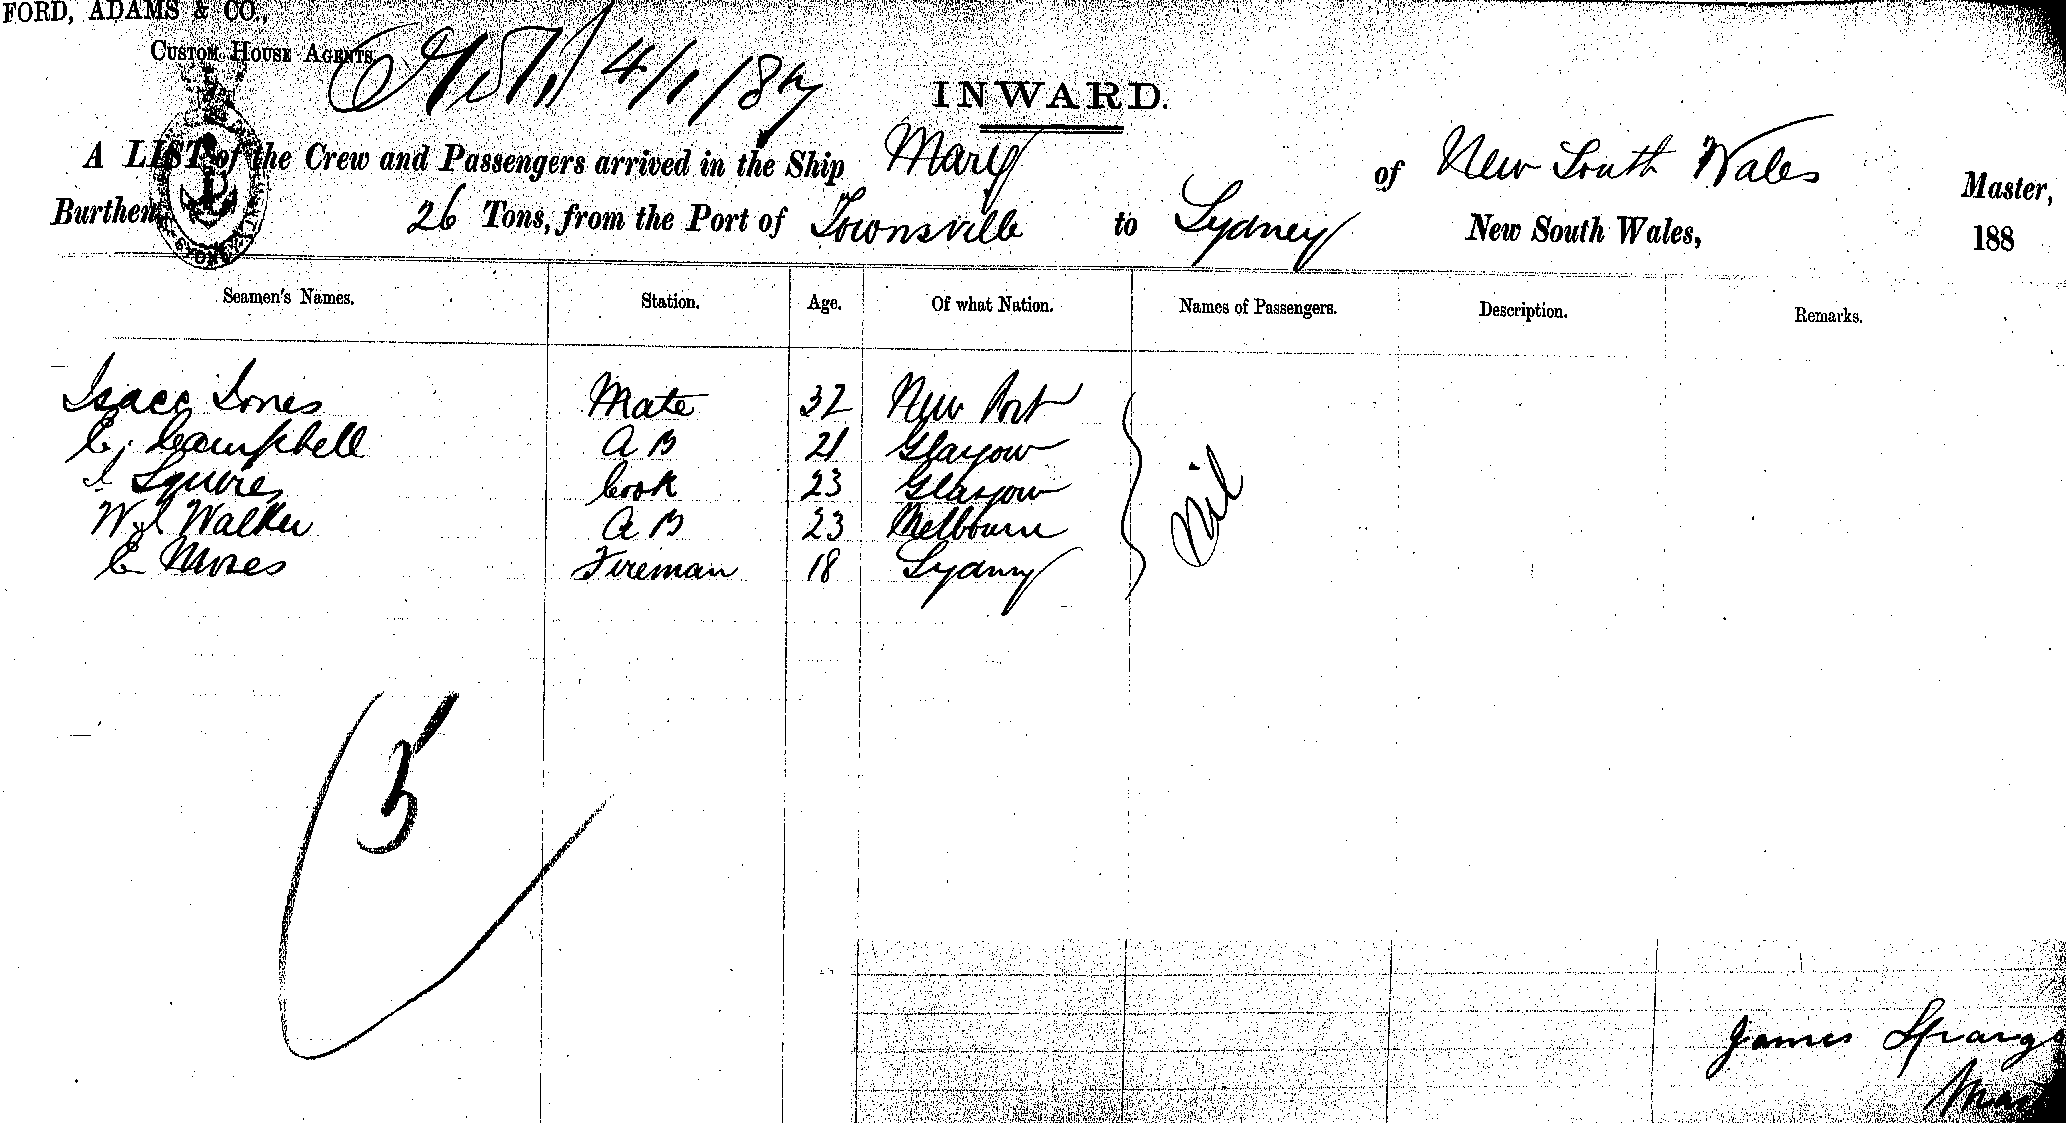 FORD, ADAMS & CO.,
CUSTOM HOUSE AGENTS
4/1/87
INWARD.
A LIST of the Crew and Passengers arrived in the Ship Mary of New South Wales Master,
Burthen 26 Tons, from the Port of Townsville to Sydney New South Wales, 188
Seamen's Names. Station. Age. Of what Nation. Names of Passengers. Description. Remarks.
Isacc Jones Mate 32 New Port
C. Campbell A B 21 Glasgow
Squires Cook 23 Glasgow
Walker A B 23 Melbourne
C Moses Fireman 18 Sydney
Nil
5
James Spargo